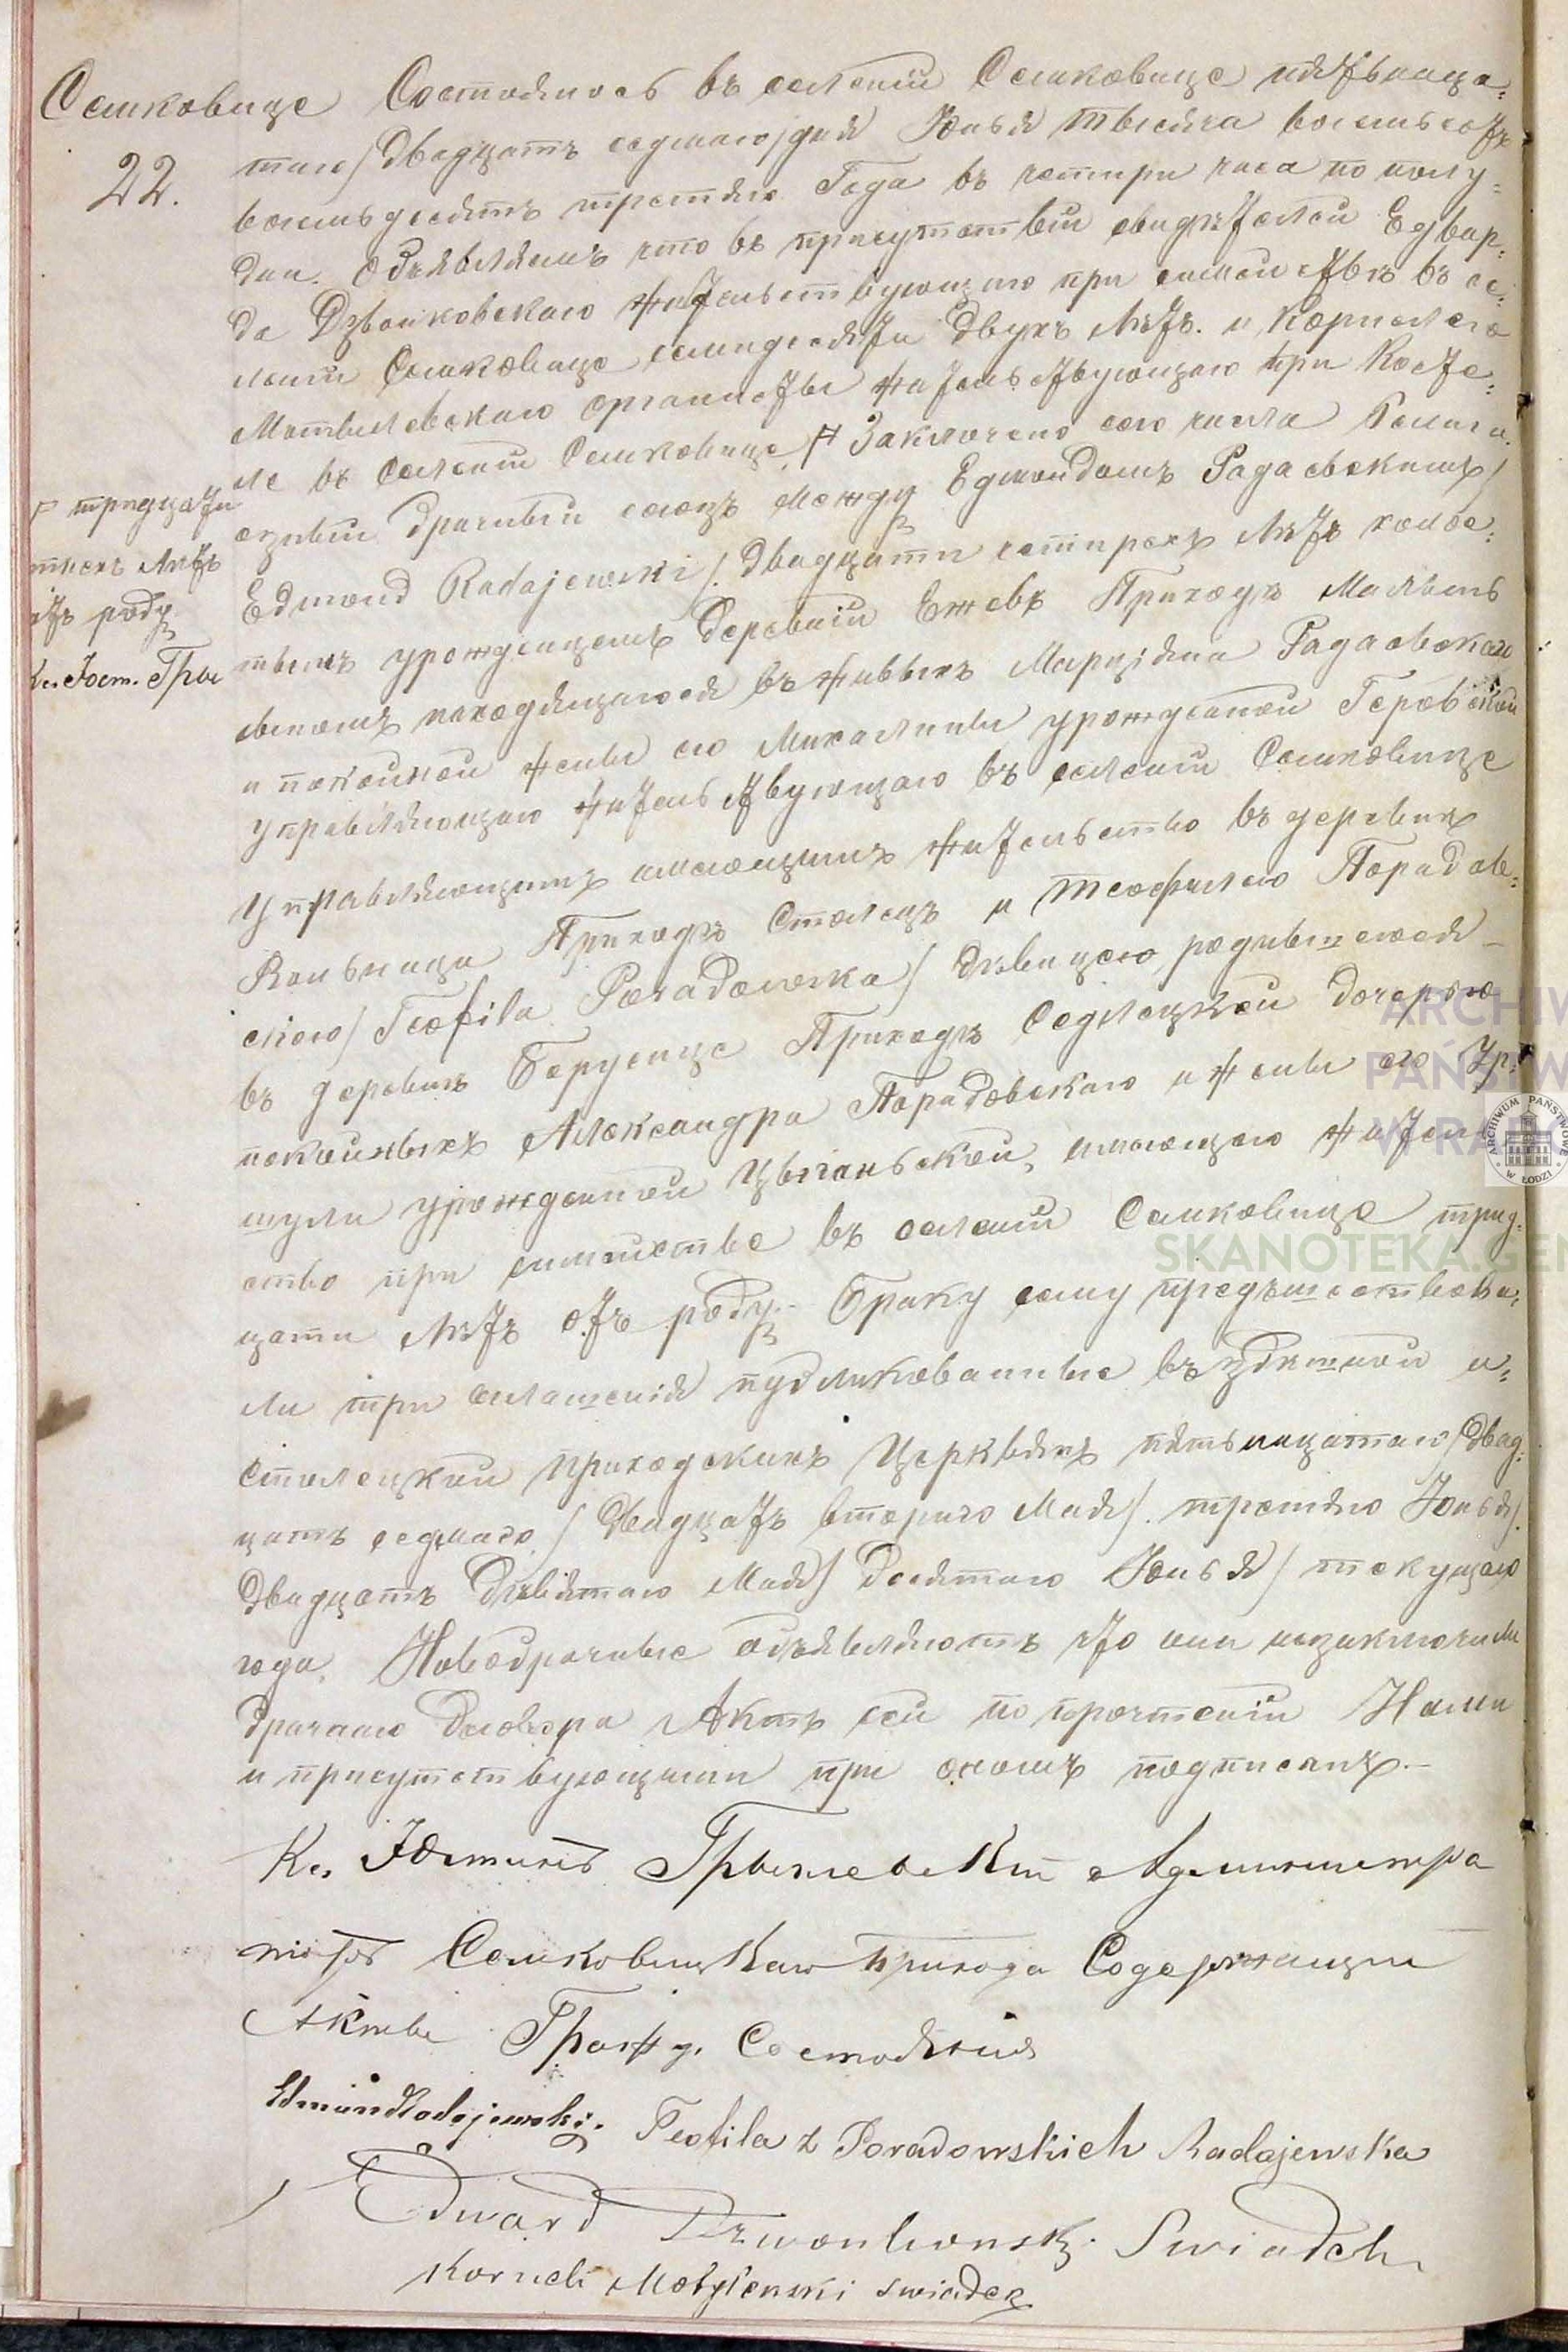 Семковице
22.
Состоялось въ селеніи Семковице пятьнаца-
таго/двадцать седмаго/дня Юнья тысяча восемьсотъ
восемьдесятъ третяго Года въ четыри часа по полу-
дни. Объявляемъ что въ присутствіи свидѣтелей Едвар-
да Дзвонковскаго жительствующаго при сынѣ въ се-
леніи Семковице семидесяти двухъ лѣтъ. и Корнелего
Мотылевскаго органисты жительствующаго при Косте-
ле въ Селеніи Семковице # Заключено сего числа Религі
озный брачный союзъ между Едмондомъ Радаевскимъ/
Edmond Radajewski/. двадцати четирехъ лѣтъ холос-
тымъ урожденцемъ деревни Ежевъ Приходъ Малынь
сыномъ находящагося въ живыхъ Марціяна Радаевскаго
и покойной жены его Михалины урожденой Геровской
управляющаго жительствующаго въ селеніи Семковице
Управляющимъ имеющимъ жительство въ деревнѣ
Вольница Приходъ Столецъ и Теофилею Порадов-
скою/Teofila Poradowska/ дѣвицею, родившеюся
въ деревнѣ Борусице Приходъ Седлецкой дочерью
покойныхъ Александра Порадовскаго и жены его Ур-
шули урожденной Цыганьской, имеющею житель
ство при семействе въ селеніи Семковице трид-
цати лѣтъ отъ роду.- Браку сему предъшествова-
ли три оглашенія публикованные въ здѣшной и
Столецкой приходскихъ Церквяхъ пятьнацатаго/двад-
цать седмаго./ Двадцать втораго Мая/. третяго Юнья/.
двадцать дѣвятаго Мая/ десятаго Юнья/ текущаго
года. Новобрачные объявляютъ что они незаключили
брачнаго договора. Актъ сей по прочтеніи Нами
и присутствующими при ономъ подписанъ.-
# тридцати
трехъ лѣтъ
отъ роду
Кс. Юст. Гры
Кс. Юстинъ Грыглевскій Администра
торъ Семковицкаго прихода Содержащій
Акты Гражд. Состоянія
Edmund Radajewski.
Teofila z Poradowskich Radajewska
Edward Dzwonkowski. Swiadek
Korneli Motylewski swiadek
ARCHIW
PAŃSTW
W RAD
ARCHIWUM PAŃSTWOWE
W ŁODZI
SKANOTEKA.GEN